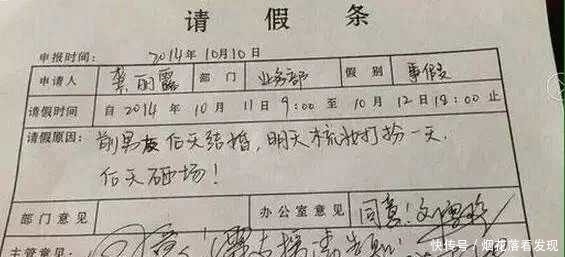 请假条
申报时间: 2014年10月10日
申请人 龚丽露 部门 业务部 假别 事假
请假时间 自 2014 年 10 月 11 日 9:00 至 10 月 12 日 18:00 止
请假原因: 前男友后天结婚,明天梳妆打扮一天.
后天砸场!
部门意见 办公室意见 同意!
主管意见
快传号 / 烟花落看发现